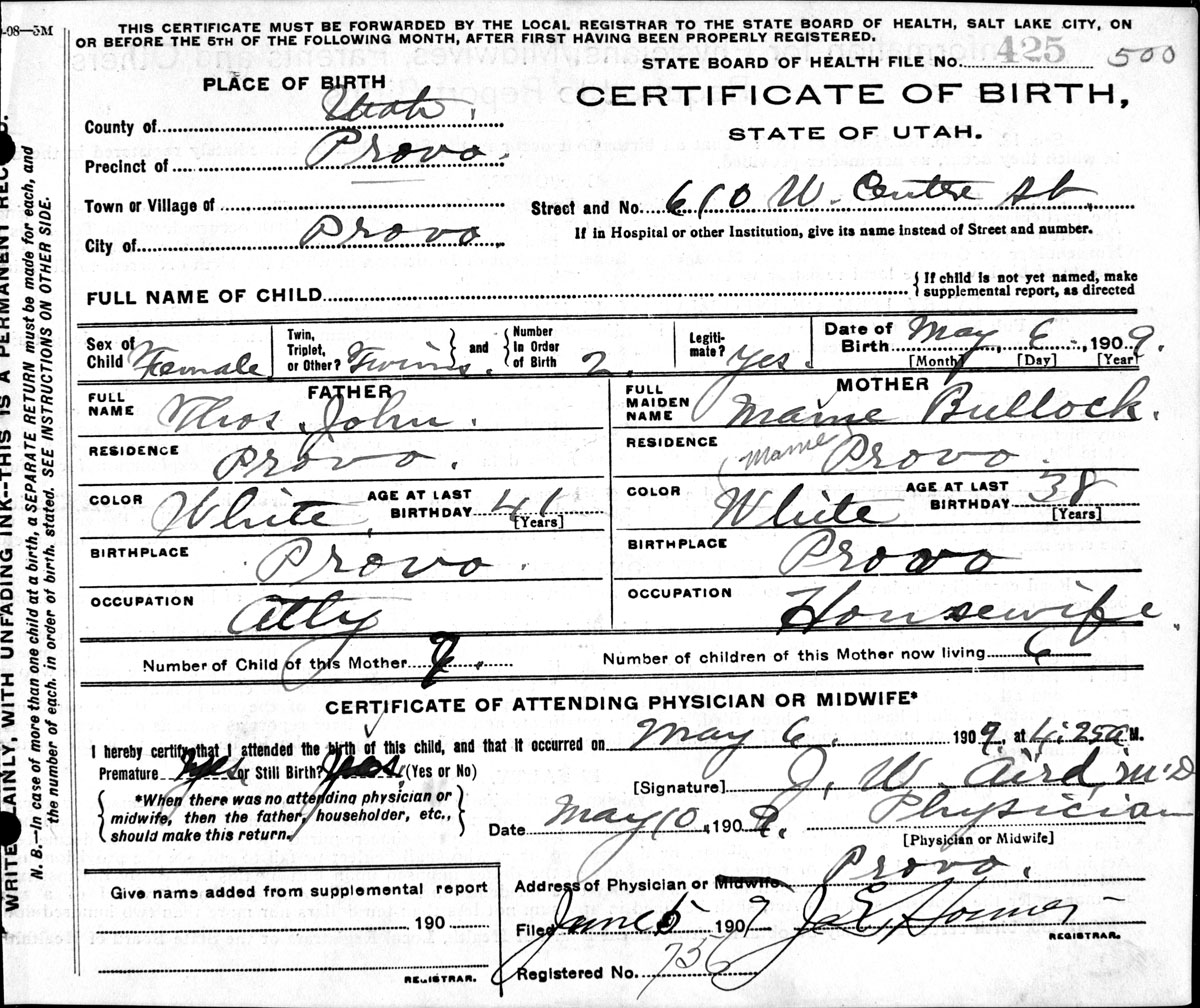 -08—5M
THIS CERTIFICATE MUST BE FORWARDED BY THE LOCAL REGISTRAR TO THE STATE BOARD OF HEALTH, SALT LAKE CITY, ON
OR BEFORE THE 5TH OF THE FOLLOWING MONTH, AFTER FIRST HAVING BEEN PROPERLY REGISTERED.
STATE BOARD OF HEALTH FILE No. 425 500
PLACE OF BIRTH
CERTIFICATE OF BIRTH,
STATE OF UTAH.
County of Utah.
Precinct of Provo.
Town or Village of
Street and No. 610 W. Center St.
City of Provo
If in Hospital or other Institution, give its name instead of Street and number.
FULL NAME OF CHILD
{ If child is not yet named, make
supplemental report, as directed
Sex of Child Female
Twin, Triplet, or Other? Twins. } and { Number In Order of Birth 2.
Legiti-mate? Yes.
Date of Birth May 6, 1909.
[Month] [Day] [Year]
FATHER
MOTHER
FULL NAME Thos. John.
FULL MAIDEN NAME Mamie Bullock.
RESIDENCE Provo.
RESIDENCE Mamie Provo.
COLOR White. AGE AT LAST BIRTHDAY 41 [Years]
COLOR White AGE AT LAST BIRTHDAY 38 [Years]
BIRTHPLACE Provo.
BIRTHPLACE Provo
OCCUPATION Atty
OCCUPATION Housewife.
Number of Child of this Mother 9.
Number of children of this Mother now living 6
CERTIFICATE OF ATTENDING PHYSICIAN OR MIDWIFE*
I hereby certify that I attended the birth of this child, and that it occurred on May 6, 1909, at 4:25 a M.
Premature Yes or Still Birth? (Yes or No)
[Signature] J. W. Aird M.D
{ *When there was no attending physician or
midwife, then the father, householder, etc.,
should make this return. }
Date May 10, 1909. Physician
[Physician or Midwife]
Address of Physician or Midwife Provo.
Give name added from supplemental report
190
REGISTRAR.
Filed June 5 1909
REGISTRAR.
Registered No. 756
WRITE PLAINLY, WITH UNFADING INK--THIS IS A PERMANENT RECORD.
N. B.—In case of more than one child at a birth, a SEPARATE RETURN must be made for each, and
the number of each. in order of birth. stated. SEE INSTRUCTIONS ON OTHER SIDE.